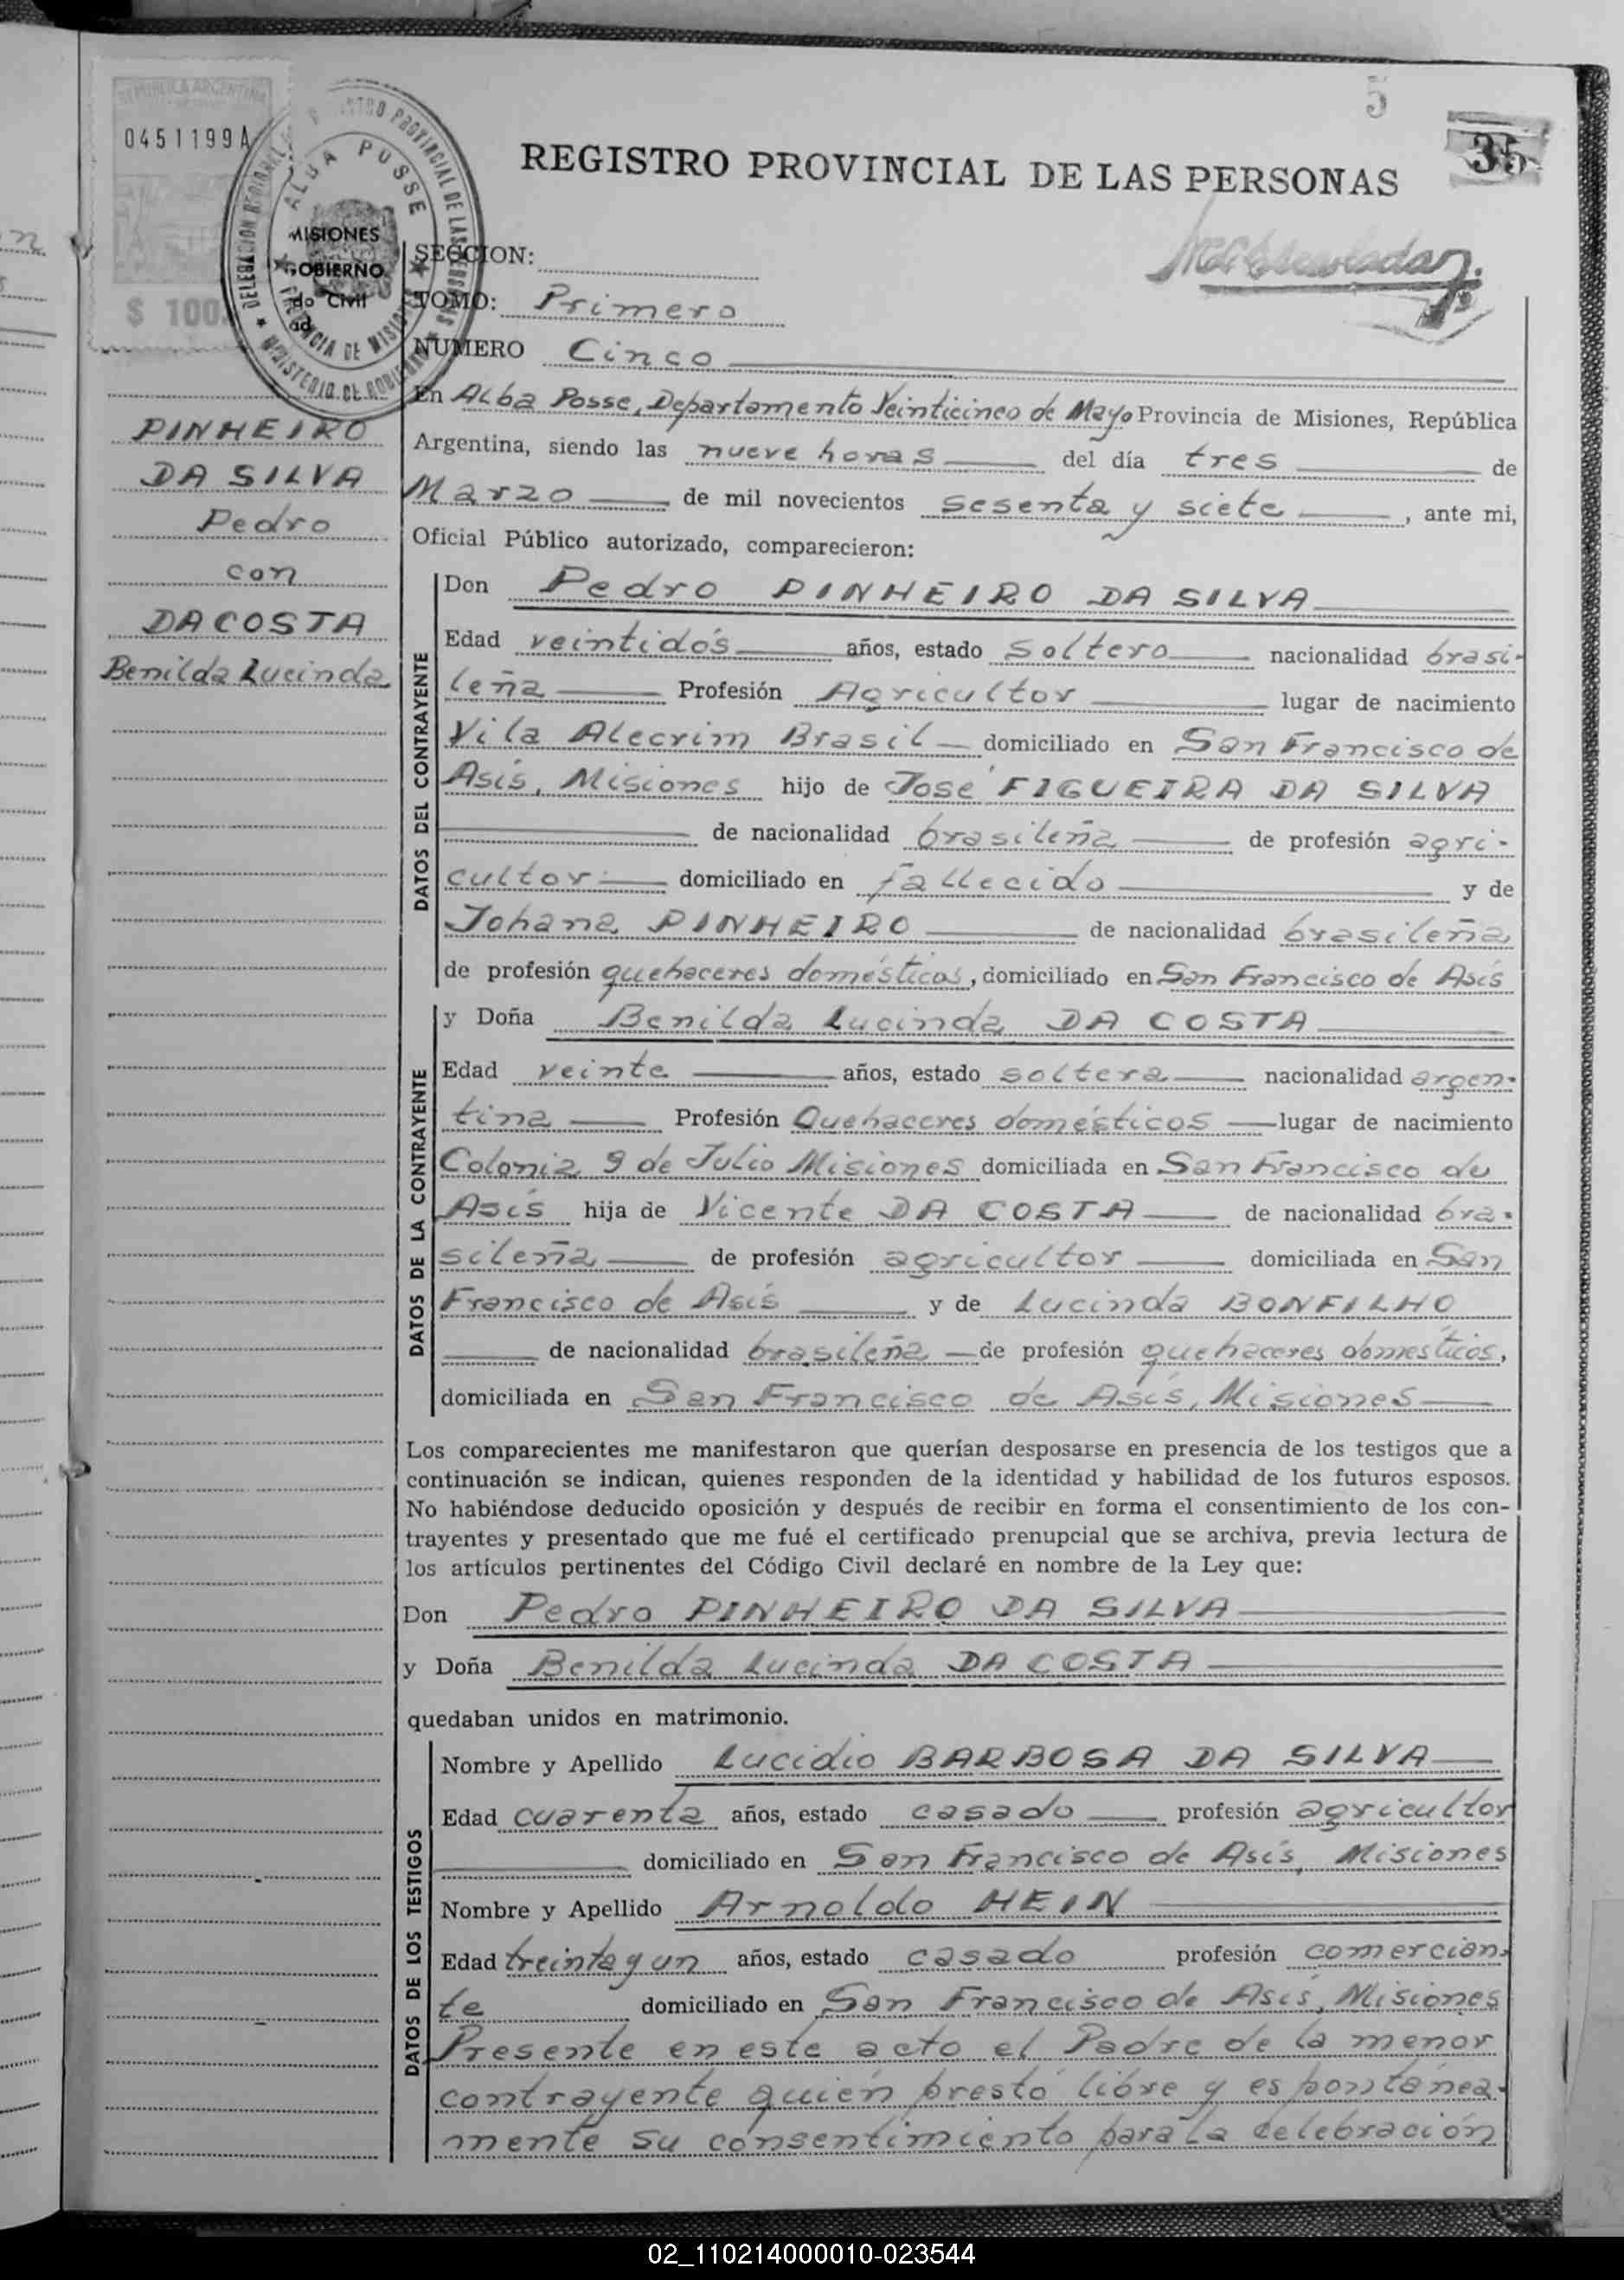 5
35
REPUBLICA ARGENTINA
0451199A
$ 100
ALBA POSSE
MISIONES
GOBIERNO
do Civil
ad
REGISTRO PROVINCIAL DE LAS PERSONAS
SECCION:
TOMO: Primero
NUMERO Cinco
En Alba Posse, Departamento Veinticinco de Mayo Provincia de Misiones, República
Argentina, siendo las nueve horas del día tres de
Marzo de mil novecientos sesenta y siete, ante mi,
Oficial Público autorizado, comparecieron:
PINHEIRO
DA SILVA
Pedro
con
DA COSTA
Benilda Lucinda
DATOS DEL CONTRAYENTE
Don Pedro PINHEIRO DA SILVA
Edad veintidós años, estado soltero nacionalidad brasi-
leña Profesión Agricultor lugar de nacimiento
Vila Alecrim Brasil domiciliado en San Francisco de
Asís, Misiones hijo de José FIGUEIRA DA SILVA
de nacionalidad brasileña de profesión agri-
cultor domiciliado en fallecido y de
Johana PINHEIRO de nacionalidad brasileña
de profesión quehaceres domésticos, domiciliado en San Francisco de Asís
DATOS DE LA CONTRAYENTE
y Doña Benilda Lucinda DA COSTA
Edad veinte años, estado soltera nacionalidad argen-
tina Profesión Quehaceres domésticos lugar de nacimiento
Colonia 9 de Julio Misiones domiciliada en San Francisco de
Asís hija de Vicente DA COSTA de nacionalidad bra-
sileña de profesión agricultor domiciliada en San
Francisco de Asís y de Lucinda BONFILHO
de nacionalidad brasileña de profesión quehaceres domésticos,
domiciliada en San Francisco de Asís, Misiones
Los comparecientes me manifestaron que querían desposarse en presencia de los testigos que a
continuación se indican, quienes responden de la identidad y habilidad de los futuros esposos.
No habiéndose deducido oposición y después de recibir en forma el consentimiento de los con-
trayentes y presentado que me fué el certificado prenupcial que se archiva, previa lectura de
los artículos pertinentes del Código Civil declaré en nombre de la Ley que:
Don Pedro PINHEIRO DA SILVA
y Doña Benilda Lucinda DA COSTA
quedaban unidos en matrimonio.
DATOS DE LOS TESTIGOS
Nombre y Apellido Lucidio BARBOSA DA SILVA
Edad cuarenta años, estado casado profesión agricultor
domiciliado en San Francisco de Asís, Misiones
Nombre y Apellido Arnoldo HEIN
Edad treinta y un años, estado casado profesión comercian-
te domiciliado en San Francisco de Asís, Misiones
Presente en este acto el Padre de la menor
contrayente quién prestó libre y espontánea-
mente su consentimiento para la celebración
02_110214000010-023544